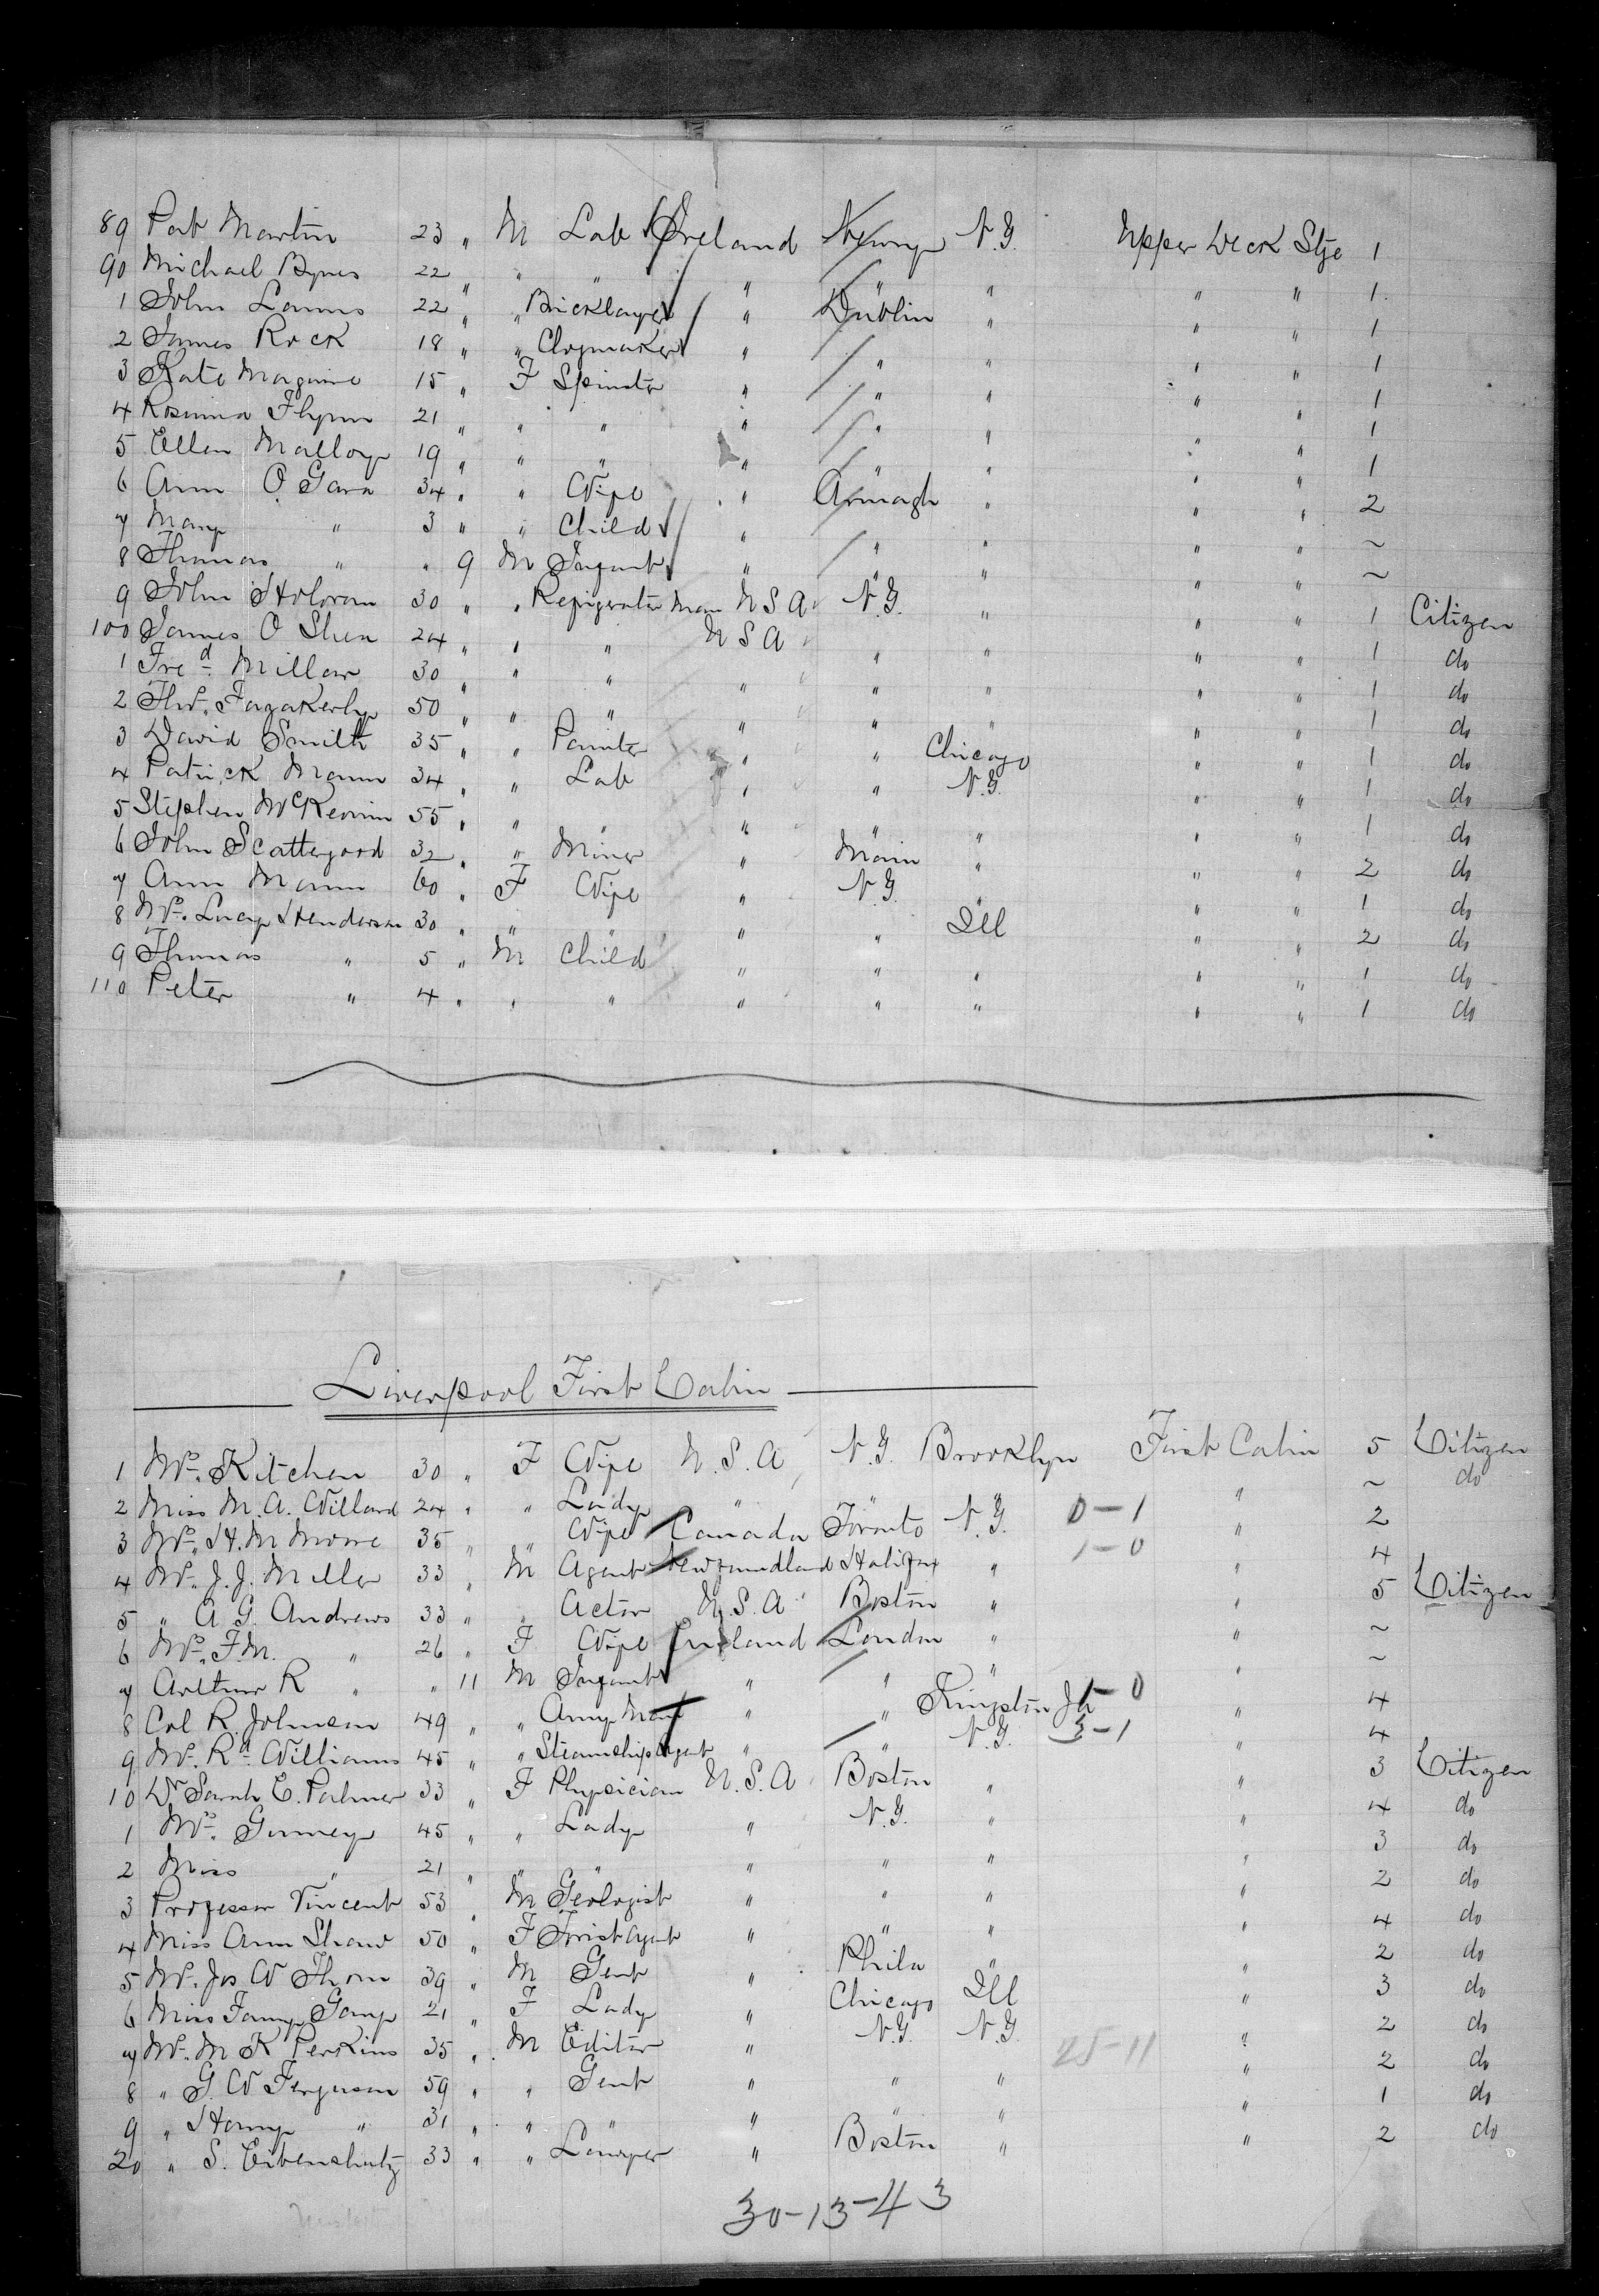 89 Pat Martin 23 " M Lab Ireland Newry N.Y. Upper Deck Stge 1
90 Michael Byrnes 22 " " " " " " " " 1
1 John Lanns 22 " " Bricklayer " Dublin " " " 1
2 James Rock 18 " " Clogmaker " " " " " 1
3 Kate Maguire 15 " F Spinster " " " " " 1
4 Rosinna Flynn 21 " " " " " " " " 1
5 Ellen Malloy 19 " " " " " " " " 1
6 Ann O'Gara 34 " " Wife " Armagh " " " 2
7 Mary " 3 " " Child " " " " " ~
8 Thomas " " 9 M Infant " " " " " ~
9 John Holoran 30 " " Refrigerator Man U S A N.Y. " " " 1 Citizen
100 James O Shea 24 " " " U S A " " " " 1 do
1 Fred Millar 30 " " " " " " " " 1 do
2 Thos. Fazakerly 50 " " " " " " " " 1 do
3 David Smith 35 " " Painter " " Chicago " " 1 do
4 Patrick Mann 34 " " Lab " " N.Y. " " 1 do
5 Stephen McKevinn 55 " " " " " " " " 1 do
6 John Scattergood 32 " " Miner " Main " " " 2 do
7 Ann Mann 60 " F Wife " N.Y. " " " 1 do
8 Mrs. Lucy Henderson 30 " " " " " Ill " " 2 do
9 Thomas " 5 " M Child " " " " " 1 do
110 Peter " 4 " " " " " " " " 1 do
Liverpool First Cabin
1 Mrs. Kitchen 30 " F Wife U.S.A N.Y. Brooklyn First Cabin 5 Citizen
2 Miss M.A. Willard 24 " " Lady " " " ~ do
3 Mrs. H.M Moore 35 " " Wife Canada Toronto N.Y. 0-1 " 2
4 Mr. J.J. Miller 33 " M Agent Newfoundland Halifax " 1-0 " 4
5 " A G. Andrews 33 " " Actor U.S.A Boston " " 5 Citizen
6 Mrs. F.M. " 26 " F Wife England London " " ~
7 Arthur R " " 11 M Infant " " " " ~
8 Col R. Johnson 49 " " Army Man " " Kingston Ja 1-0 " 4
9 Mr. Rd. Williams 45 " " Steamship Agent " " N.Y. 3-1 " 4
10 Dr Sarah E. Palmer 33 " F Physician U.S.A Boston " " 3 Citizen
1 Mrs. Gurney 45 " " Lady " N.Y. " " 4 do
2 Miss " 21 " " " " " " " 3 do
3 Professor Vincent 53 " M Geologist " " " " 2 do
4 Miss Ann Shaw 50 " F Tourist Agent " " " " 4 do
5 Mr. Jos W Thorn 39 " M Gent " Phila " " 2 do
6 Miss Fanny Gamp 21 " F Lady " Chicago Ill " 3 do
7 Mr. M K Perkins 35 " M Editor " N.Y. N.Y. 25-11 " 2 do
8 " G. W Ferguson 59 " " Gent " " " " 2 do
9 " Harry " 31 " " " " " " " 1 do
20 " S. Eibenshutz 33 " " Lawyer " Boston " " 2 do
30-13-43